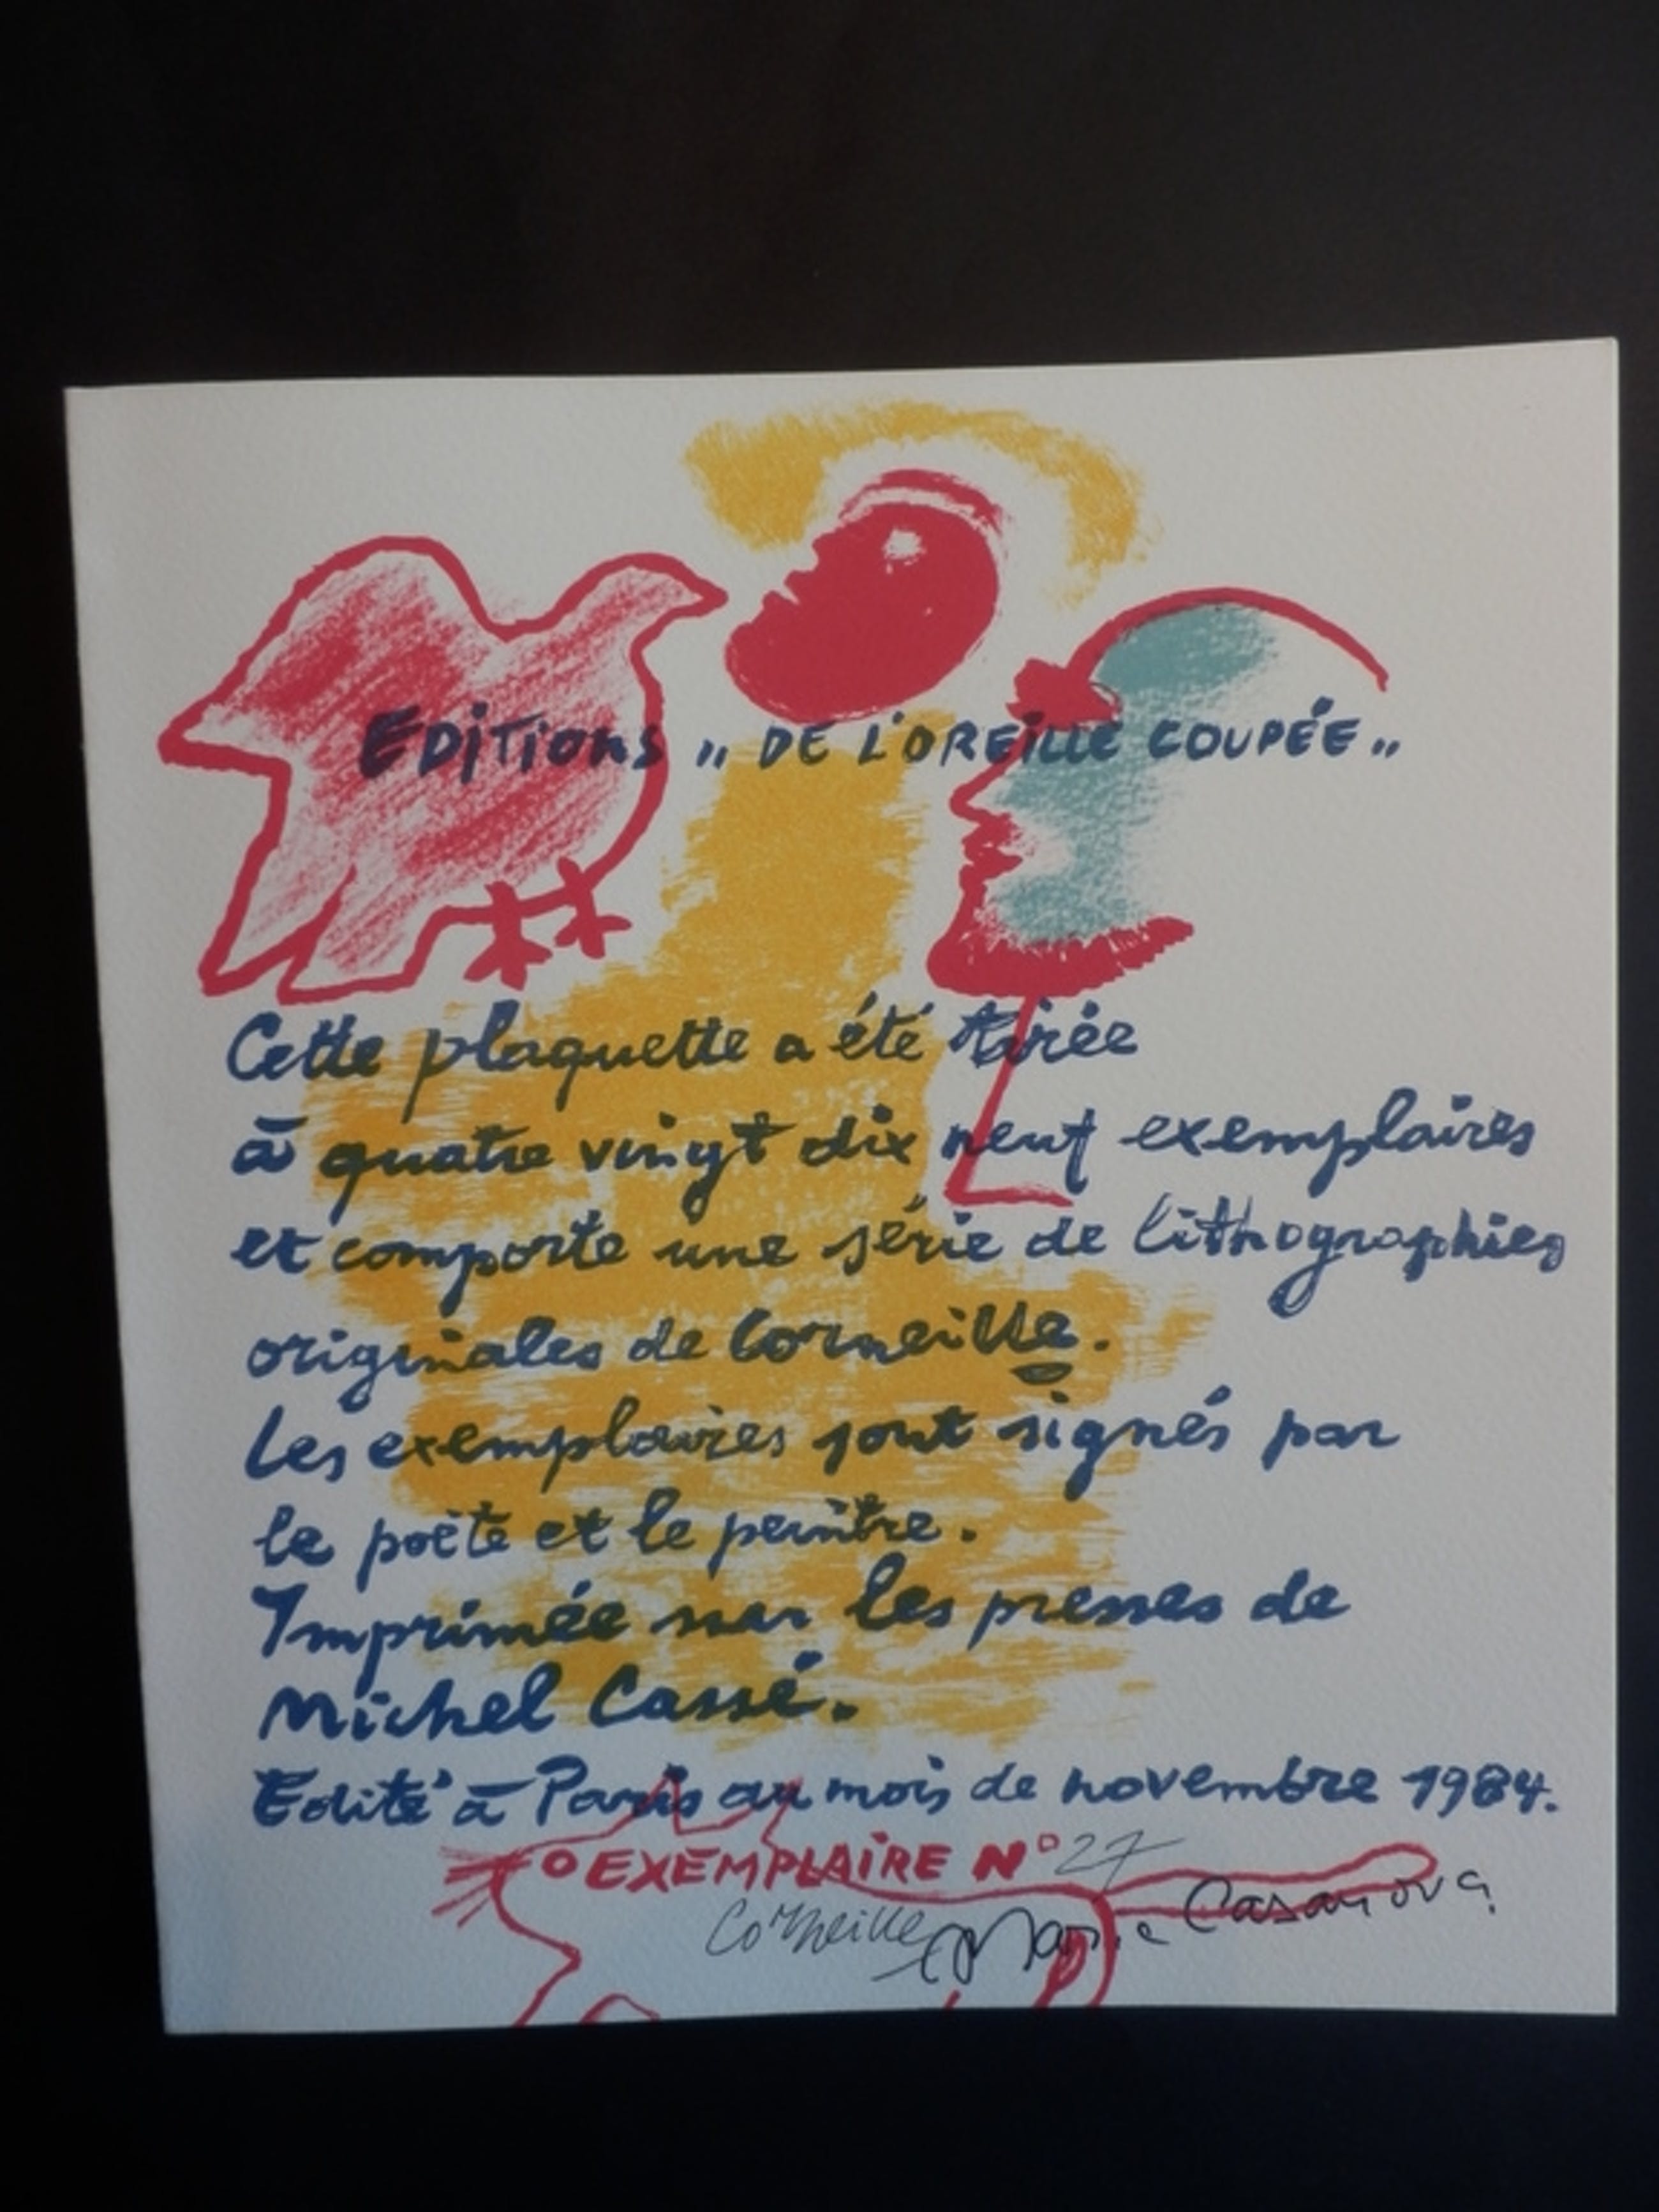 EDITIONS „ DE L'OREILLE COUPÉE „
Cette plaquette a été tirée
à quatre vingt dix neuf exemplaires
et comporte une série de lithographies
originales de Corneille.
Les exemplaires sont signés par
le poète et le peintre.
Imprimée sur les presses de
Michel Cassé.
Edité à Paris au mois de novembre 1984.
EXEMPLAIRE N° 27
Corneille Marie Casanova